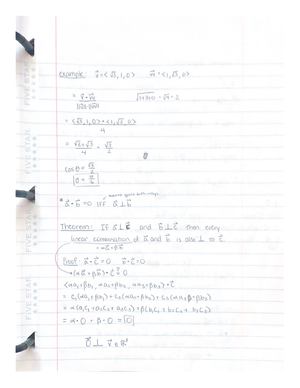 example: v⃗ = < √3, 1, 0 > w⃗ = < 1, √3, 0 >
= v⃗ • w⃗ √3+1+0 = √4 = 2
||v⃗|| ||w⃗||
= < √3, 1, 0 > • < 1, √3, 0 >
4
= √3 + √3 = √3
4 2
cos θ = √3
2
θ = π
6
* a⃗ • b⃗ = 0 IFF a⃗ ⊥ b⃗
Theorem: If a⃗ ⊥ c⃗ and b⃗ ⊥ c⃗ then every
linear combination of a⃗ and b⃗ is also ⊥ to c⃗
= αa⃗ + βb⃗
Proof: a⃗ • c⃗ = 0 b⃗ • c⃗ = 0
(αa⃗ + βb⃗) • c⃗ = 0
< αa₁ + βb₁, αa₂ + βb₂, αa₃ + βb₃ > • c⃗
= c₁(αa₁ + βb₁) + c₂(αa₂ + βb₂) + c₃(αa₃ + βb₃)
= α(a₁c₁ + a₂c₂ + a₃c₃) + β(b₁c₁ + b₂c₂ + b₃c₃)
= α • 0 + β • 0 = 0
0⃗ ⊥ v⃗ ∈ ℝ³
FIVE STAR
FIVE STAR
FIVE STAR
FIVE STAR